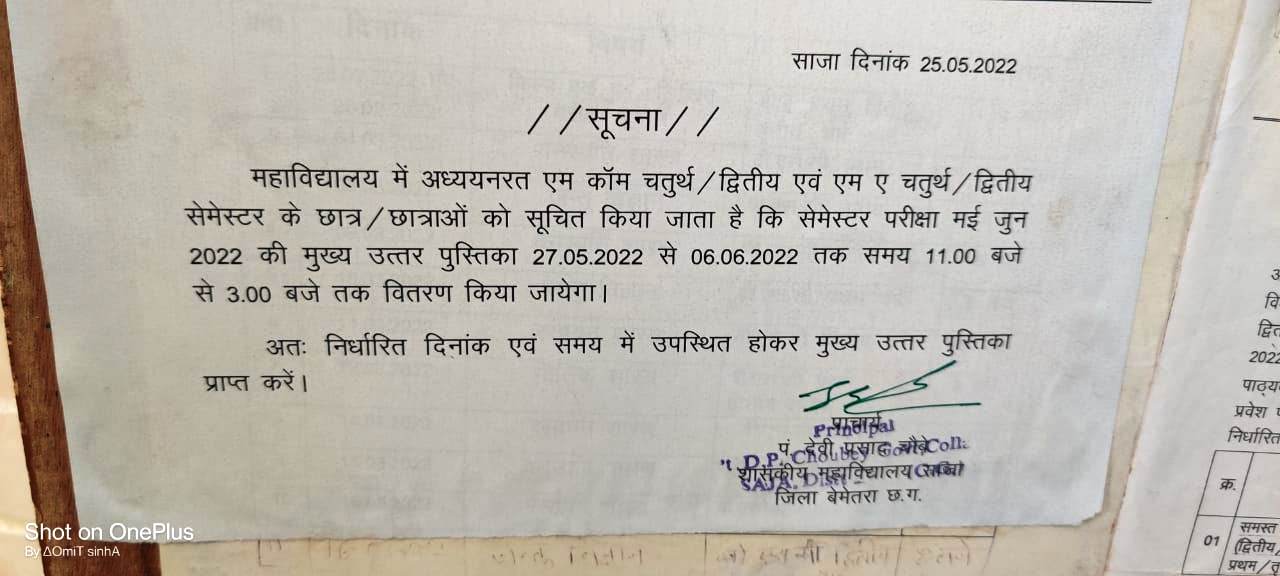 साजा दिनांक 25.05.2022
//सूचना//
महाविद्यालय में अध्ययनरत एम कॉम चतुर्थ/द्वितीय एवं एम ए चतुर्थ/द्वितीय
सेमेस्टर के छात्र/छात्राओं को सूचित किया जाता है कि सेमेस्टर परीक्षा मई जुन
2022 की मुख्य उत्तर पुस्तिका 27.05.2022 से 06.06.2022 तक समय 11.00 बजे
से 3.00 बजे तक वितरण किया जायेगा।
अतः निर्धारित दिनांक एवं समय में उपस्थित होकर मुख्य उत्तर पुस्तिका
प्राप्त करें।
प्राचार्य
Principal
पं. देवी प्रसाद चौबे
D.P. Choubey Govt. Coll.
शासकीय महाविद्यालय साजा
SAJA, Dist
जिला बेमेतरा छ.ग.
द्विती
2022
पाठ्य
प्रवेश
निर्धारित
क्र.
01
समस्त
(द्वितीय/
प्रथम/
Shot on OnePlus
By ΔOmiT sinhA